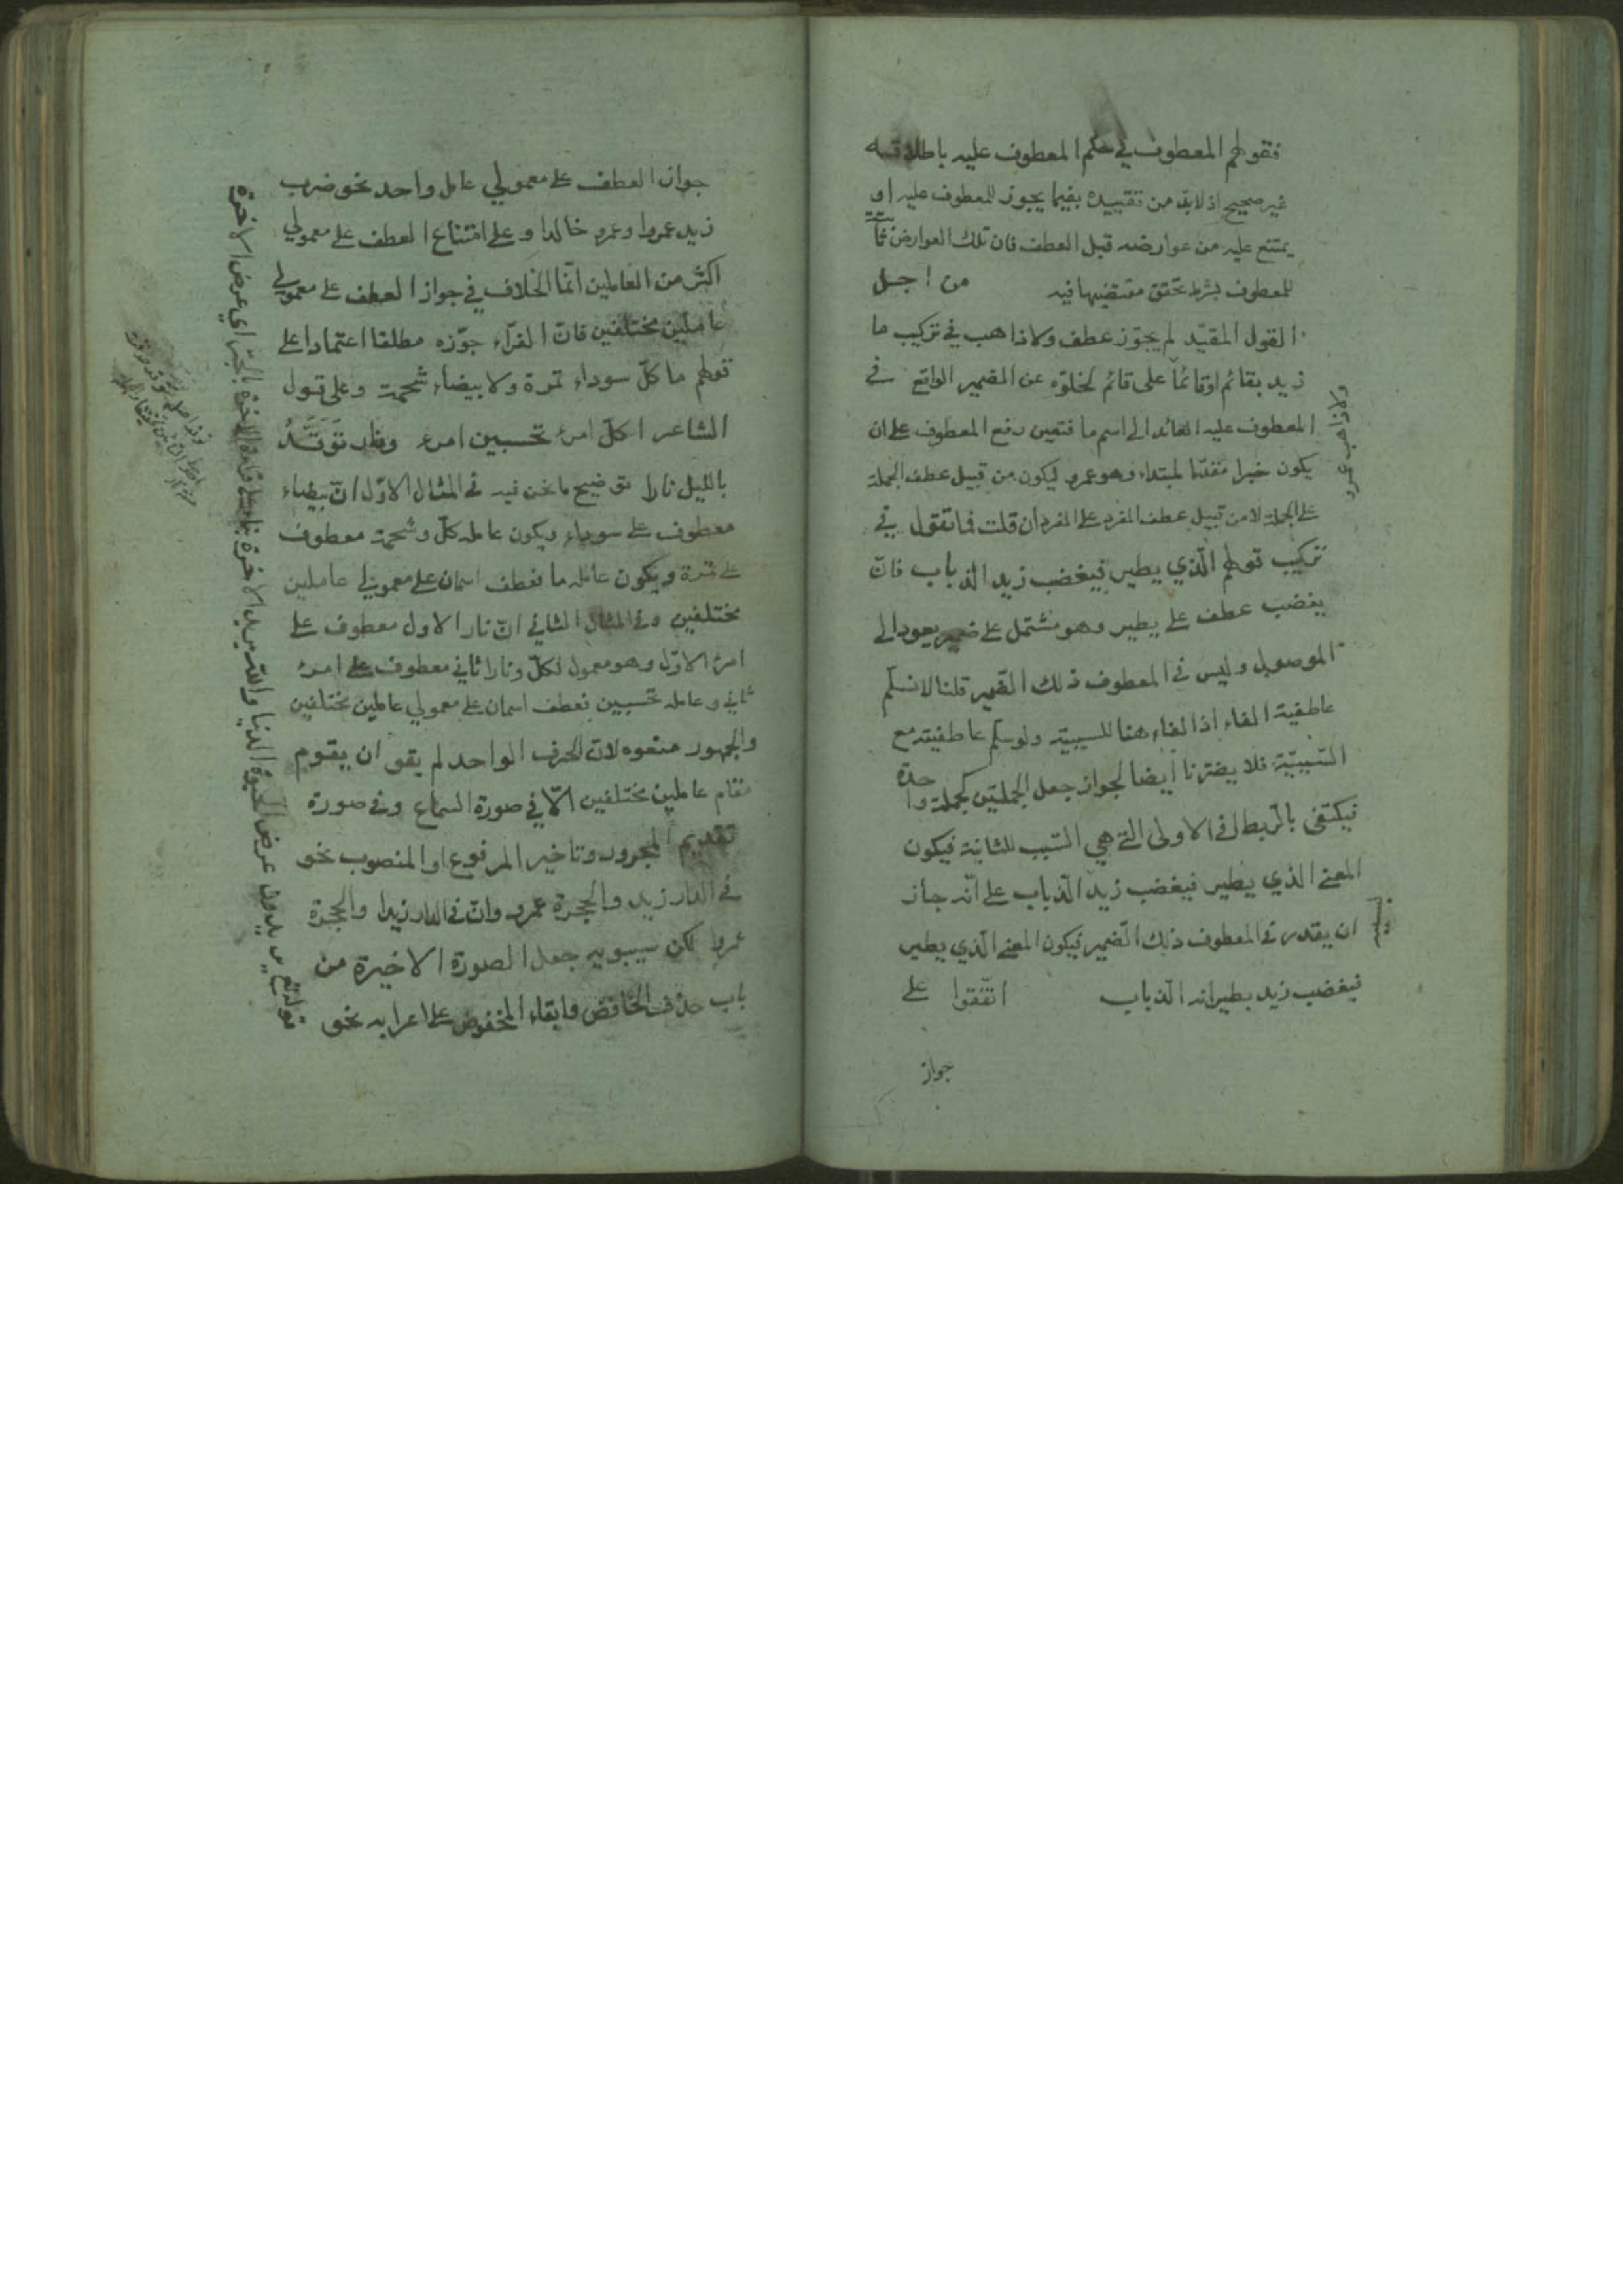 فقولهم المعطوف في حكم المعطوف عليه باطلاقه
غير صحيح اذ لابد من تقييده بفيما يجوز للمعطوف عليه او
يمتنع عليه من عوارضه قبل العطف فان تلك العوارض ثابتة
للمعطوف بشرط تحقق مقتضيها فيه من اجل
القول المقيّد لم يجوّز عطف ولا ذاهب في تركيب ما
زيد بقائم او قائمًا على قائم لخلوّه عن الضمير الواقع في
المعطوف عليه العائد الى اسم ما فتعين رفع المعطوف على ان
يكون خبرا مقدّما لمبتداء وهو عمرو ليكون من قبيل عطف الجملة
على الجملة لا من قبيل عطف المفرد على المفرد ان قلت فما تقول في
تركيب قولهم الّذي يطير فيغضب زيد الذباب فانّ
يغضب عطف على يطير وهو مشتمل على ضمير يعود الى
الموصول وليس في المعطوف ذلك الضّمير قلنا لا نسلّم
عاطفية الفاء اذ الفاء هنا للسببيّة ولو سلم عاطفيته مع
السّببيّة فلا يضرّنا أيضا لجواز جعل الجملتين كجملة واحدة
فيكتفى بالرّبط في الاولى التي هي السّبب للثانية فيكون
المعنى الذي يطير فيغضب زيد الذّباب على انّه جاز
ان يقدر في المعطوف ذلك الضّمير فيكون المعنى الّذي يطير
فيغضب زيد بطيرانه الذباب اتّفقوا على
جواز
ولا ذاهب عمرو
جواز العطف على معمولي عامل واحد نحو ضرب
زيد عمروا وعمرو خالدا وعلى امتناع العطف على معمولي
اكثر من العاملين انّما الخلاف في جواز العطف على معمولي
عاملين مختلفين فانّ الفرّاء جوّزه مطلقا اعتمادا على
قولهم ما كلّ سوداء تمرة ولا بيضاء شحمة وعلى قول
الشاعر اكلّ امرء تحسبين امرء ونار تَوَقَّدُ
بالليل نارا توضيح ما نحن فيه في المثال الاوّل انّ بيضاء
معطوف على سوداء ويكون عامله كلّ وشحمة معطوف
على تمرة ويكون عامله ما فعطف اسمان على معمولي عاملين
مختلفين وفي المثال الثاني انّ نار الاول معطوف على
امرء الاوّل وهو معمول لكلّ ونارا ثاني معطوف على امرء
ثاني وعامله تحسبين فعطف اسمان على معمولي عاملين مختلفين
والجمهور منعوه لانّ الحرف الواحد لم يقو ان يقوم
مقام عاملين مختلفين الّا في صورة السماع وفي صورة
تقديم المجرور وتاخير المرفوع او المنصوب نحو
في الدار زيد والحجرة عمرو وانّ في الدار زيدا والحجرة
عمروا لكن سيبويه جعل الصورة الاخيرة من
باب حذف الخافض وابقاء المخفوض على اعرابه نحو
قوله تع يريدون عرض الحيوة الدنيا والله يريد الاخرة والاخرة بالجرّ اي عرض الاخرة